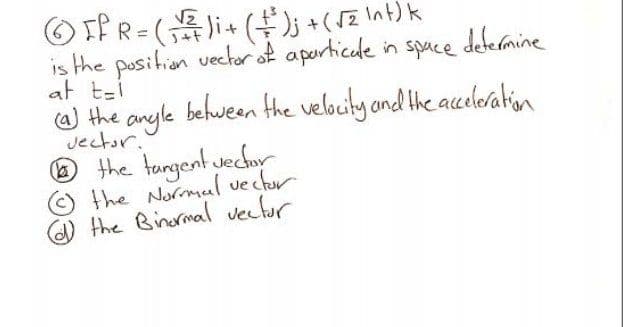 ⑥ If R = (√2/3+t)i + (t³/3)j + (√2 lnt)k
is the position vector of aparticale in space determine
at t=1
(a) the angle between the velocity and the acceleration
vector.
ⓑ the tangent vector
ⓒ the Normal vector
ⓓ the Binormal vector